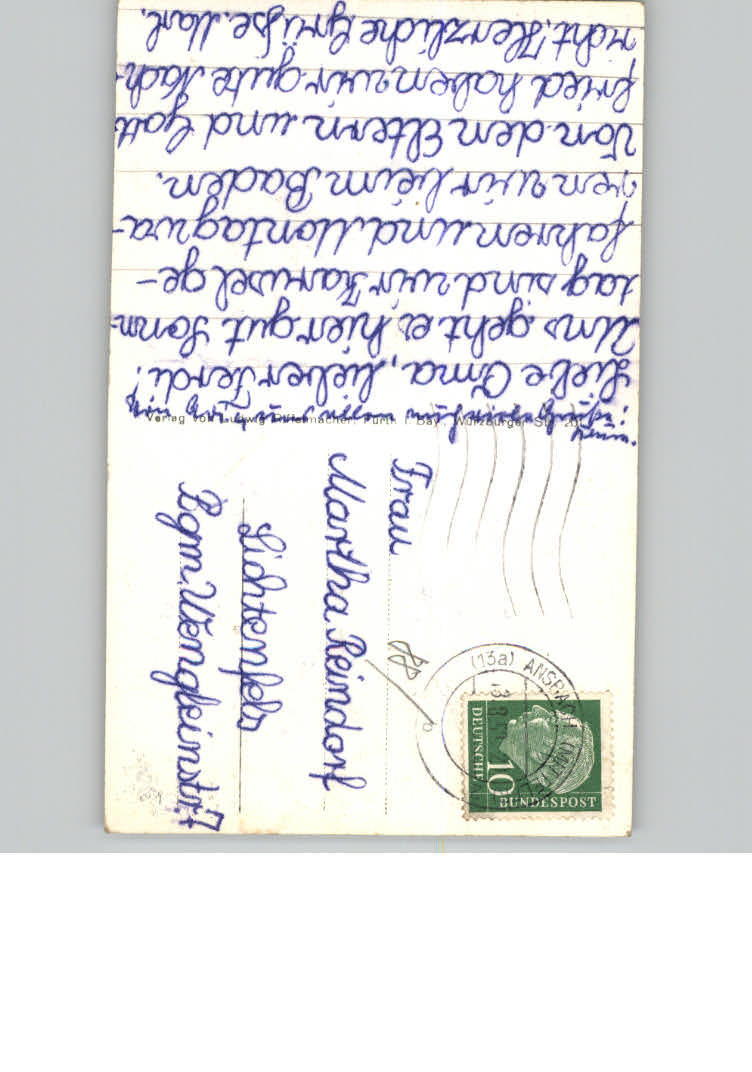 Liebe Oma, lieber Ferdi!
Uns geht es hier gut. Sonn-
tag sind wir Karusel ge-
fahren und Montag wa-
ren wir beim Baden.
Von den Eltern und Gott-
fried haben wir gute Nach-
richt. Herzliche Grüße.
Verlag von Ludwig Riffelmacher, Fürth i. Bay., Würzburger Str.
Frau
Martha Reindorf
Lichtenfels
Bgm. Wenglein str. 7
(13a) ANSBACH
DEUTSCHE
BUNDESPOST
10